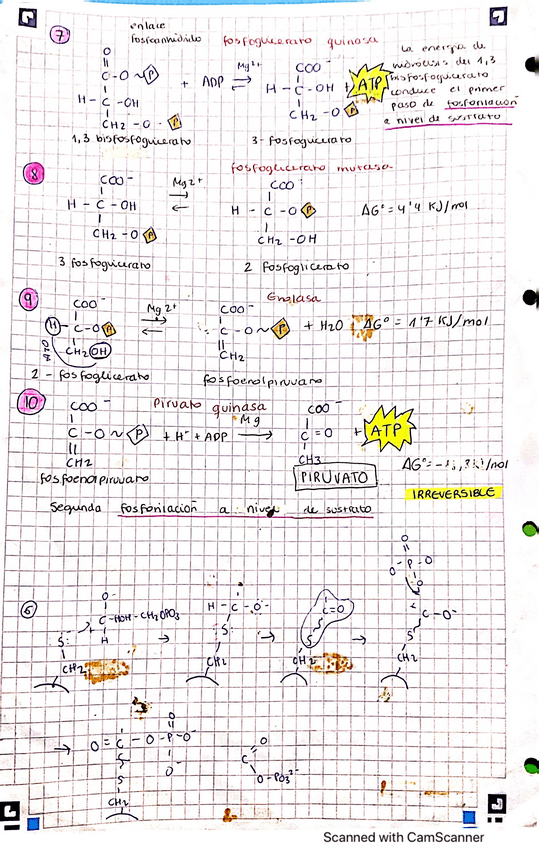 7
enlace
fosfoanhídrido
fosfoglicerato quinasa
O
C - O ~ P + ADP
Mg2+
COO-
H - C - OH + ATP
H - C - OH
CH2 - O - P
CH2 - O P
1,3 bisfosfoglicerato
3 - fosfoglicerato
La energía de
hidrólisis del 1,3
bisfosfoglicerato
conduce el primer
paso de fosforilación
a nivel de sustrato
8
fosfoglicerato mutasa
COO-
Mg2+
COO-
H - C - OH
H - C - O P
ΔG° = 4'4 KJ/mol
CH2 - O P
CH2 - OH
3 fosfoglicerato
2 fosfoglicerato
9
Enolasa
COO-
Mg2+
COO-
H - C - O P
C - O ~ P + H2O
ΔG° = 1'7 KJ/mol
CH2 OH
CH2
2 - fosfoglicerato
fosfoenolpiruvato
10
Piruvato quinasa
COO-
Mg
COO-
C - O ~ P + H+ + ADP
C = O + ATP
CH2
CH3
fosfoenolpiruvato
PIRUVATO
IRREVERSIBLE
Segunda fosforilación a nivel de sustrato
6
O-
C - HOH - CH2OPO3
H
S:
CH2
H - C - O-
S:
CH2
C = O
S
CH2
O
O- - P - O
O
C - O-
S
CH2
O
O = C - O - P - O-
O-
S
CH2
O
C
O - PO3 2-
Scanned with CamScanner